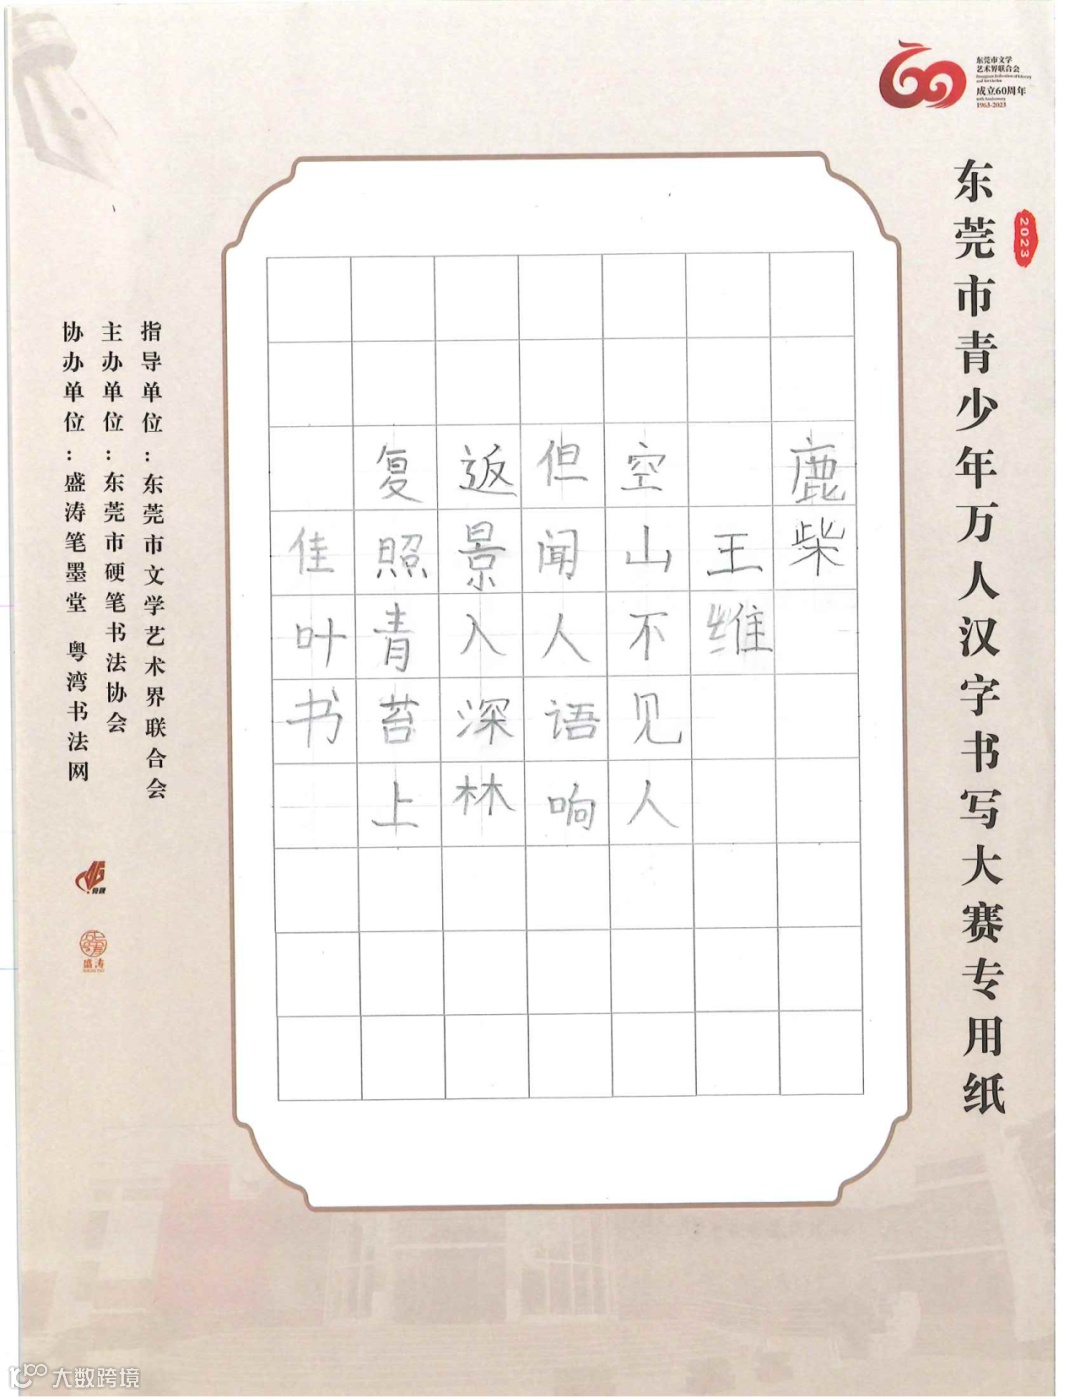 东莞市文学
艺术界联合会
成立60周年
1963-2023
2023
东莞市青少年万人汉字书写大赛专用纸
鹿柴
王维
空山不见人
但闻人语响
返景入深林
复照青苔上
佳叶书
指导单位：东莞市文学艺术界联合会
主办单位：东莞市硬笔书法协会
协办单位：盛涛笔墨堂 粤湾书法网
盛涛
大数跨境